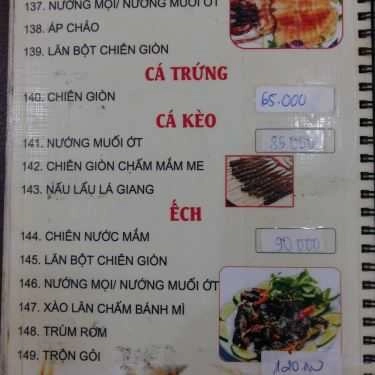 137. NƯỚNG MỌI/ NƯỚNG MUỐI ỚT
138. ÁP CHẢO
139. LĂN BỘT CHIÊN GIÒN
CÁ TRỨNG
140. CHIÊN GIÒN 65.000
CÁ KÈO
141. NƯỚNG MUỐI ỚT 85000
142. CHIÊN GIÒN CHẤM MẮM ME
143. NẤU LẨU LÁ GIANG
ẾCH
144. CHIÊN NƯỚC MẮM 90000
145. LĂN BỘT CHIÊN GIÒN
146. NƯỚNG MỌI/ NƯỚNG MUỐI ỚT
147. XÀO LĂN CHẤM BÁNH MÌ
148. TRÙM RƠM
149. TRỘN GỎI